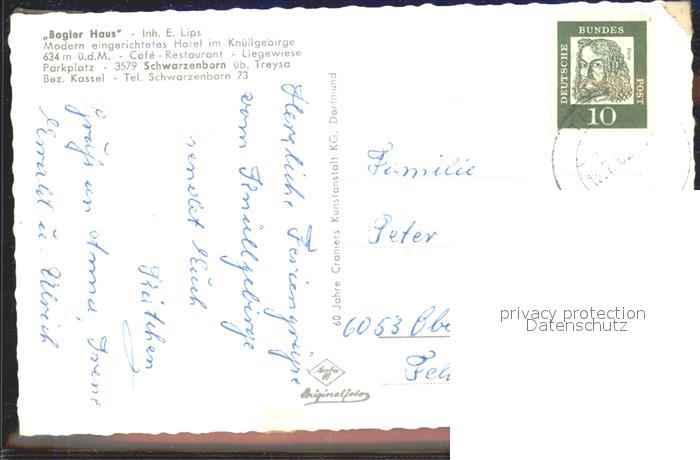 „Bogler Haus" - Inh. E. Lips
Modern eingerichtetes Hotel im Knüllgebirge
634 m ü.d.M. - Café-Restaurant - Liegewiese
Parkplatz - 3579 Schwarzenborn üb. Treysa
Bez. Kassel - Tel. Schwarzenborn 73
Herzliche Feriengrüße
vom Knüllgebirge
sendet Euch
Kätchen
Gruß an Anna, Irene
Ewald u. Ulrich
60 Jahre Cramers Kunstanstalt KG, Dortmund
Originalfoto
DEUTSCHE BUNDES POST
10
Familie
Peter
6053 Obe
privacy protection
Datenschutz